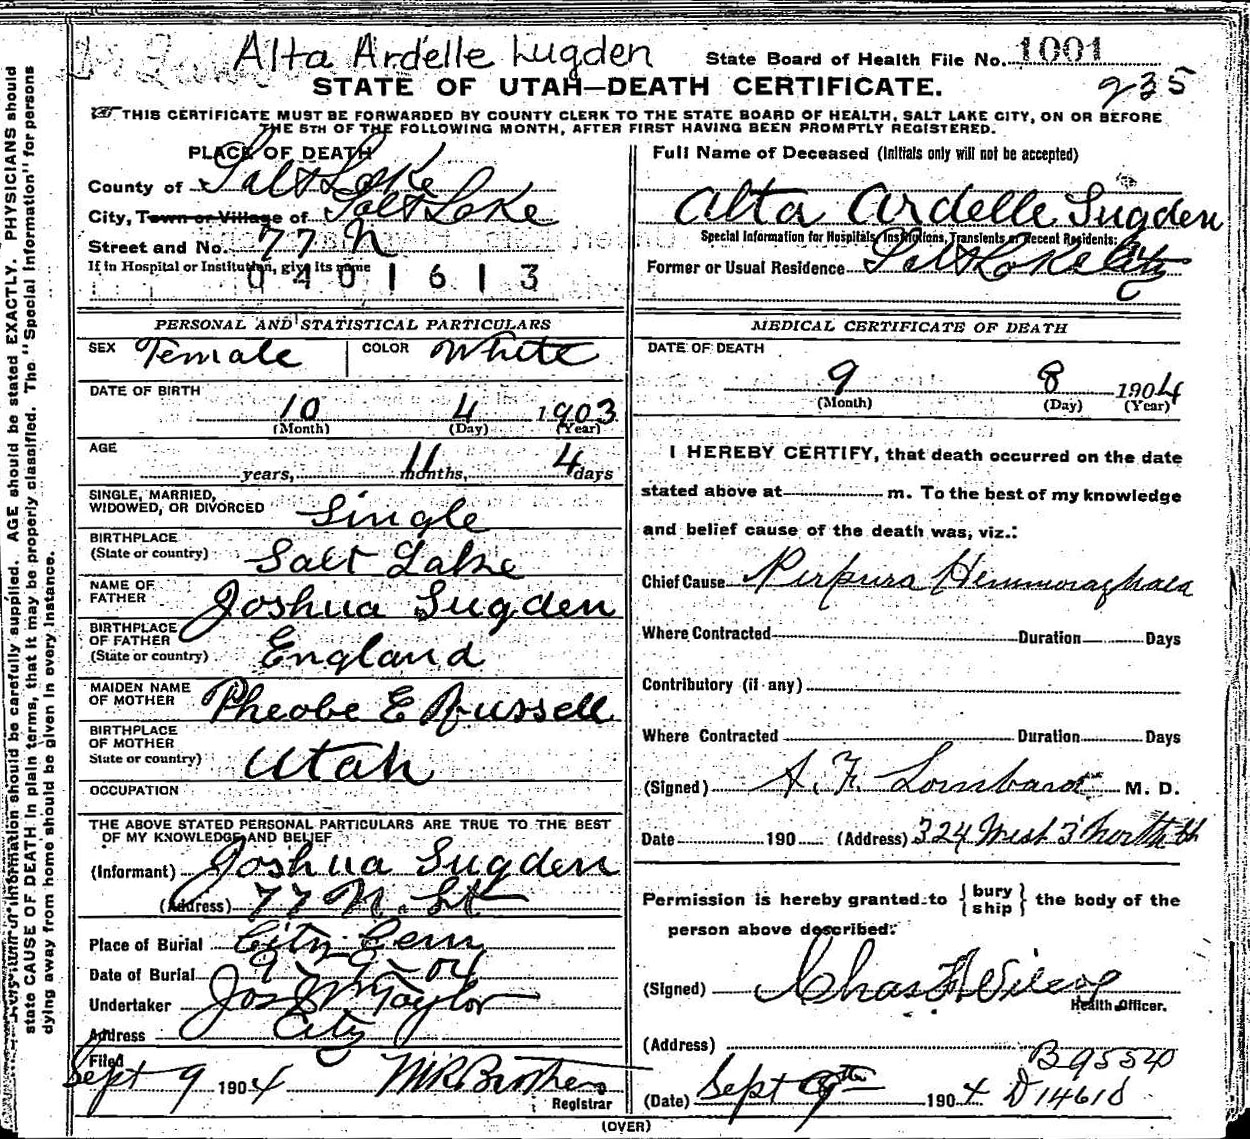 Alta Ardelle Sugden
State Board of Health File No. 1001
235
STATE OF UTAH—DEATH CERTIFICATE.
THIS CERTIFICATE MUST BE FORWARDED BY COUNTY CLERK TO THE STATE BOARD OF HEALTH, SALT LAKE CITY, ON OR BEFORE
THE 5TH OF THE FOLLOWING MONTH, AFTER FIRST HAVING BEEN PROMPTLY REGISTERED.
PLACE OF DEATH
County of Salt Lake
City, Town or Village of Salt Lake
Street and No. 77 N
If in Hospital or Institution, give its name
0401613
Full Name of Deceased (Initials only will not be accepted)
Alta Ardelle Sugden
Special Information for Hospitals, Institutions, Transients or Recent Residents:
Former or Usual Residence Salt Lake City
PERSONAL AND STATISTICAL PARTICULARS
SEX Female COLOR White
DATE OF BIRTH
10 4 1903
(Month) (Day) (Year)
AGE
years, 11 months, 4 days
SINGLE, MARRIED,
WIDOWED, OR DIVORCED Single
BIRTHPLACE
(State or country) Salt Lake
NAME OF
FATHER Joshua Sugden
BIRTHPLACE
OF FATHER
(State or country) England
MAIDEN NAME
OF MOTHER Pheobe E Russell
BIRTHPLACE
OF MOTHER
State or country) Utah
OCCUPATION
THE ABOVE STATED PERSONAL PARTICULARS ARE TRUE TO THE BEST
OF MY KNOWLEDGE AND BELIEF
(Informant) Joshua Sugden
(Address) 77 N. St
Place of Burial City Cem
Date of Burial 9-9-04
Undertaker Jos Wm Taylor
Address City
Filed
Sept 9 1904 M R Brothers
Registrar
MEDICAL CERTIFICATE OF DEATH
DATE OF DEATH
9 8 1904
(Month) (Day) (Year)
I HEREBY CERTIFY, that death occurred on the date
stated above at m. To the best of my knowledge
and belief cause of the death was, viz.:
Chief Cause Purpura Hemmoraghaea
Where Contracted Duration Days
Contributory (if any)
Where Contracted Duration Days
(Signed) A. F. Lombard M. D.
Date 190 (Address) 324 West 3 North St
Permission is hereby granted to { bury ship } the body of the
person above described:
(Signed) Chas F Wilcox
Health Officer.
(Address)
B 9554D
(Date) Sept 9th 1904 D 1461D
(OVER)
Every item of information should be carefully supplied. AGE should be stated EXACTLY. PHYSICIANS should
state CAUSE OF DEATH in plain terms, that it may be properly classified. The "Special Information" for persons
dying away from home should be given in every instance.